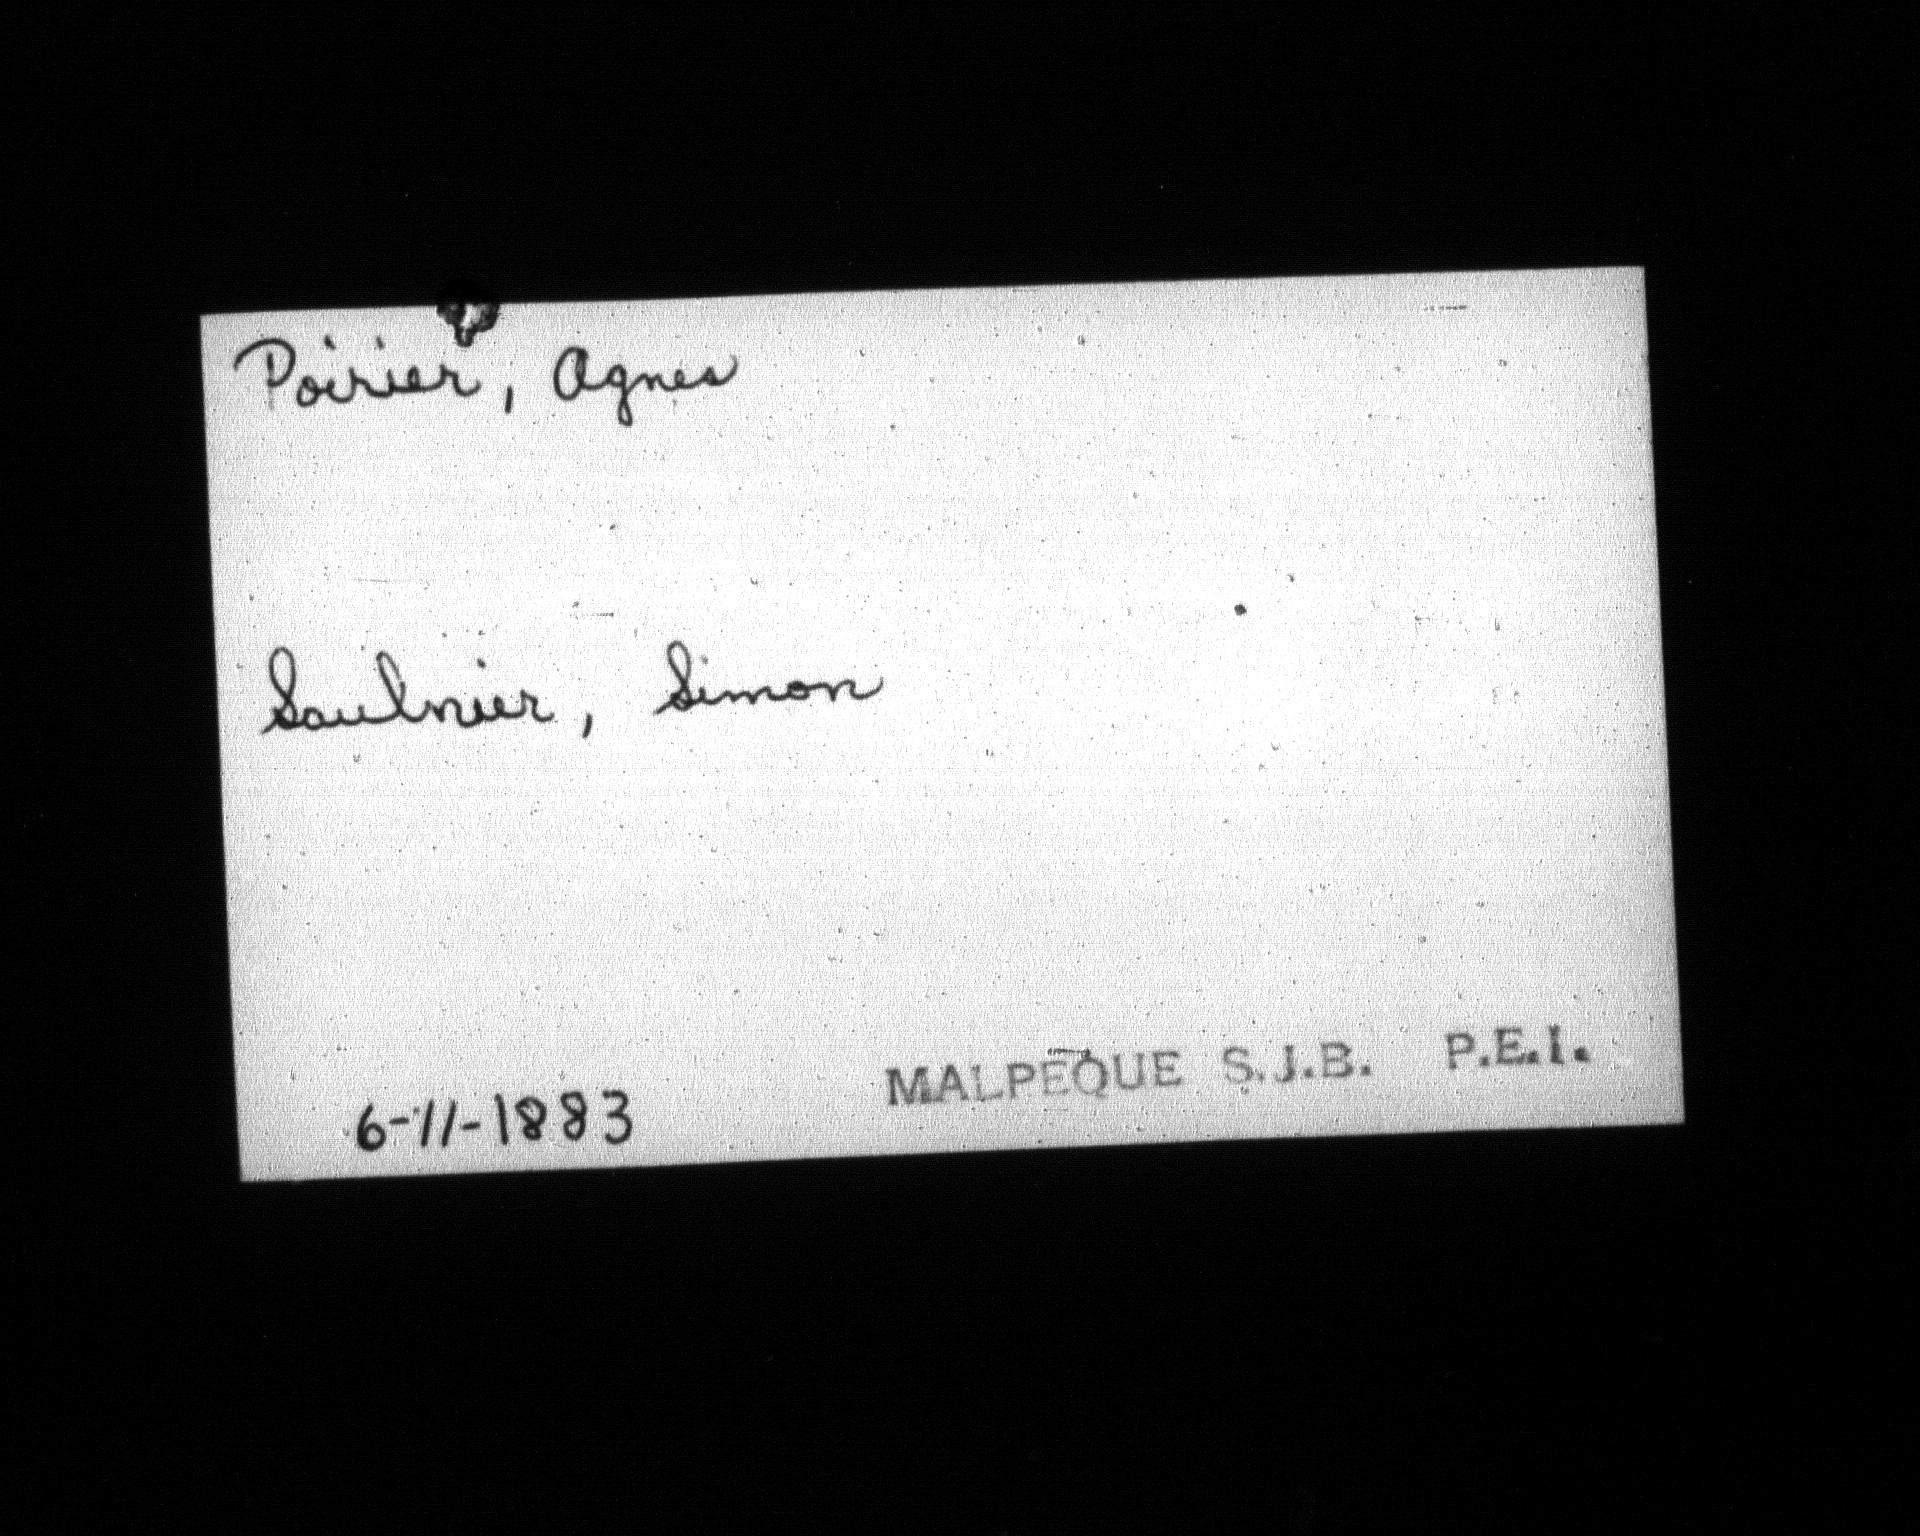 Poirier, Agnes
Saulnier, Simon
6-11-1883
MALPEQUE S.J.B. P.E.I.